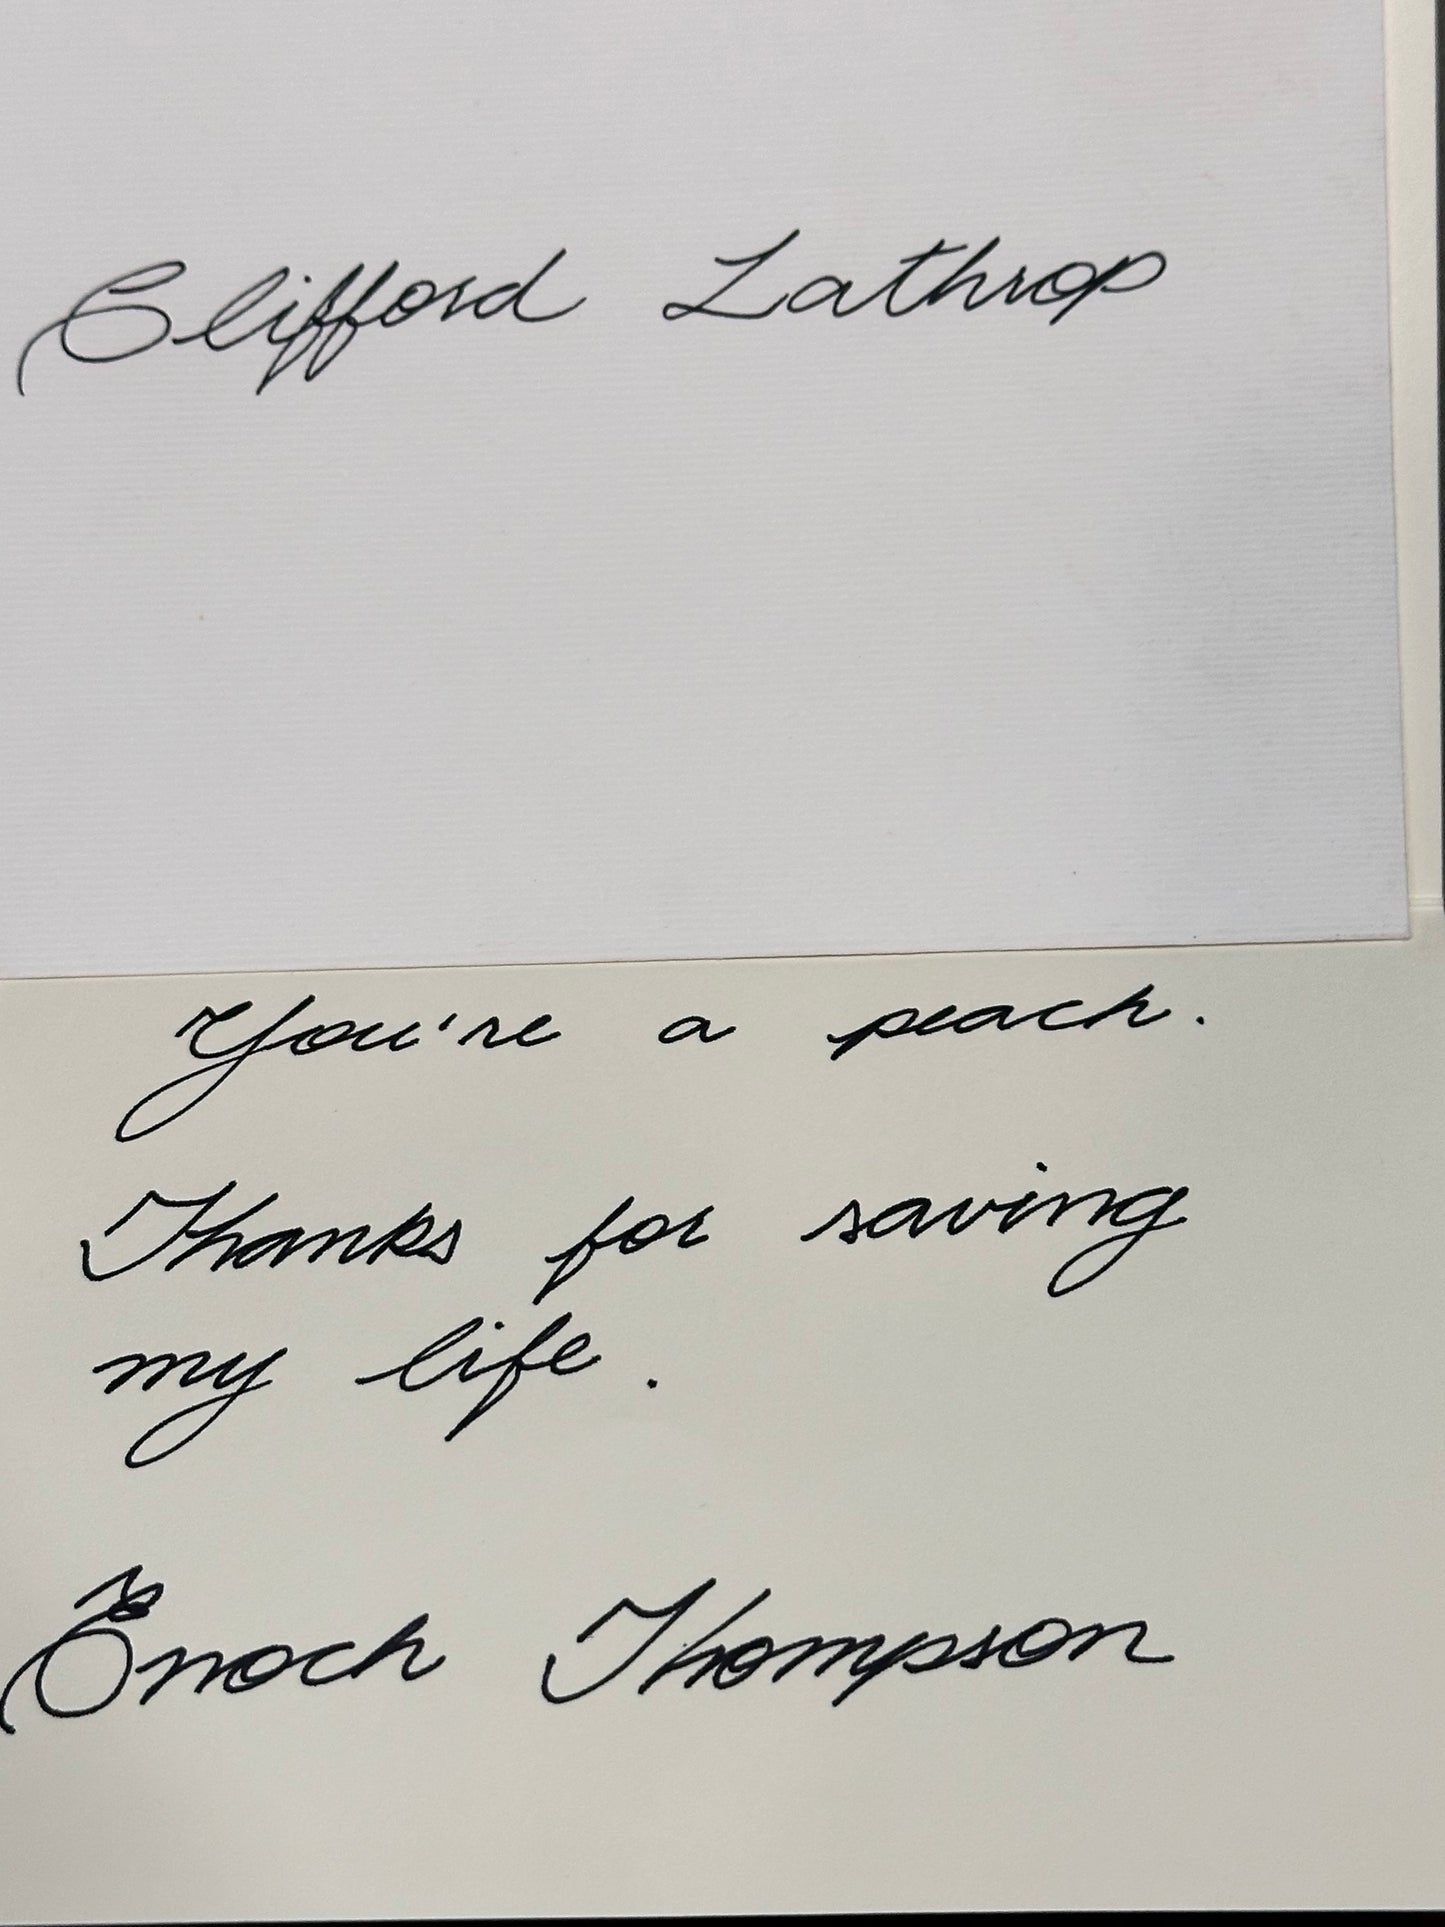 Clifford Lathrop
You're a peach.
Thanks for saving
my life.
Enoch Thompson